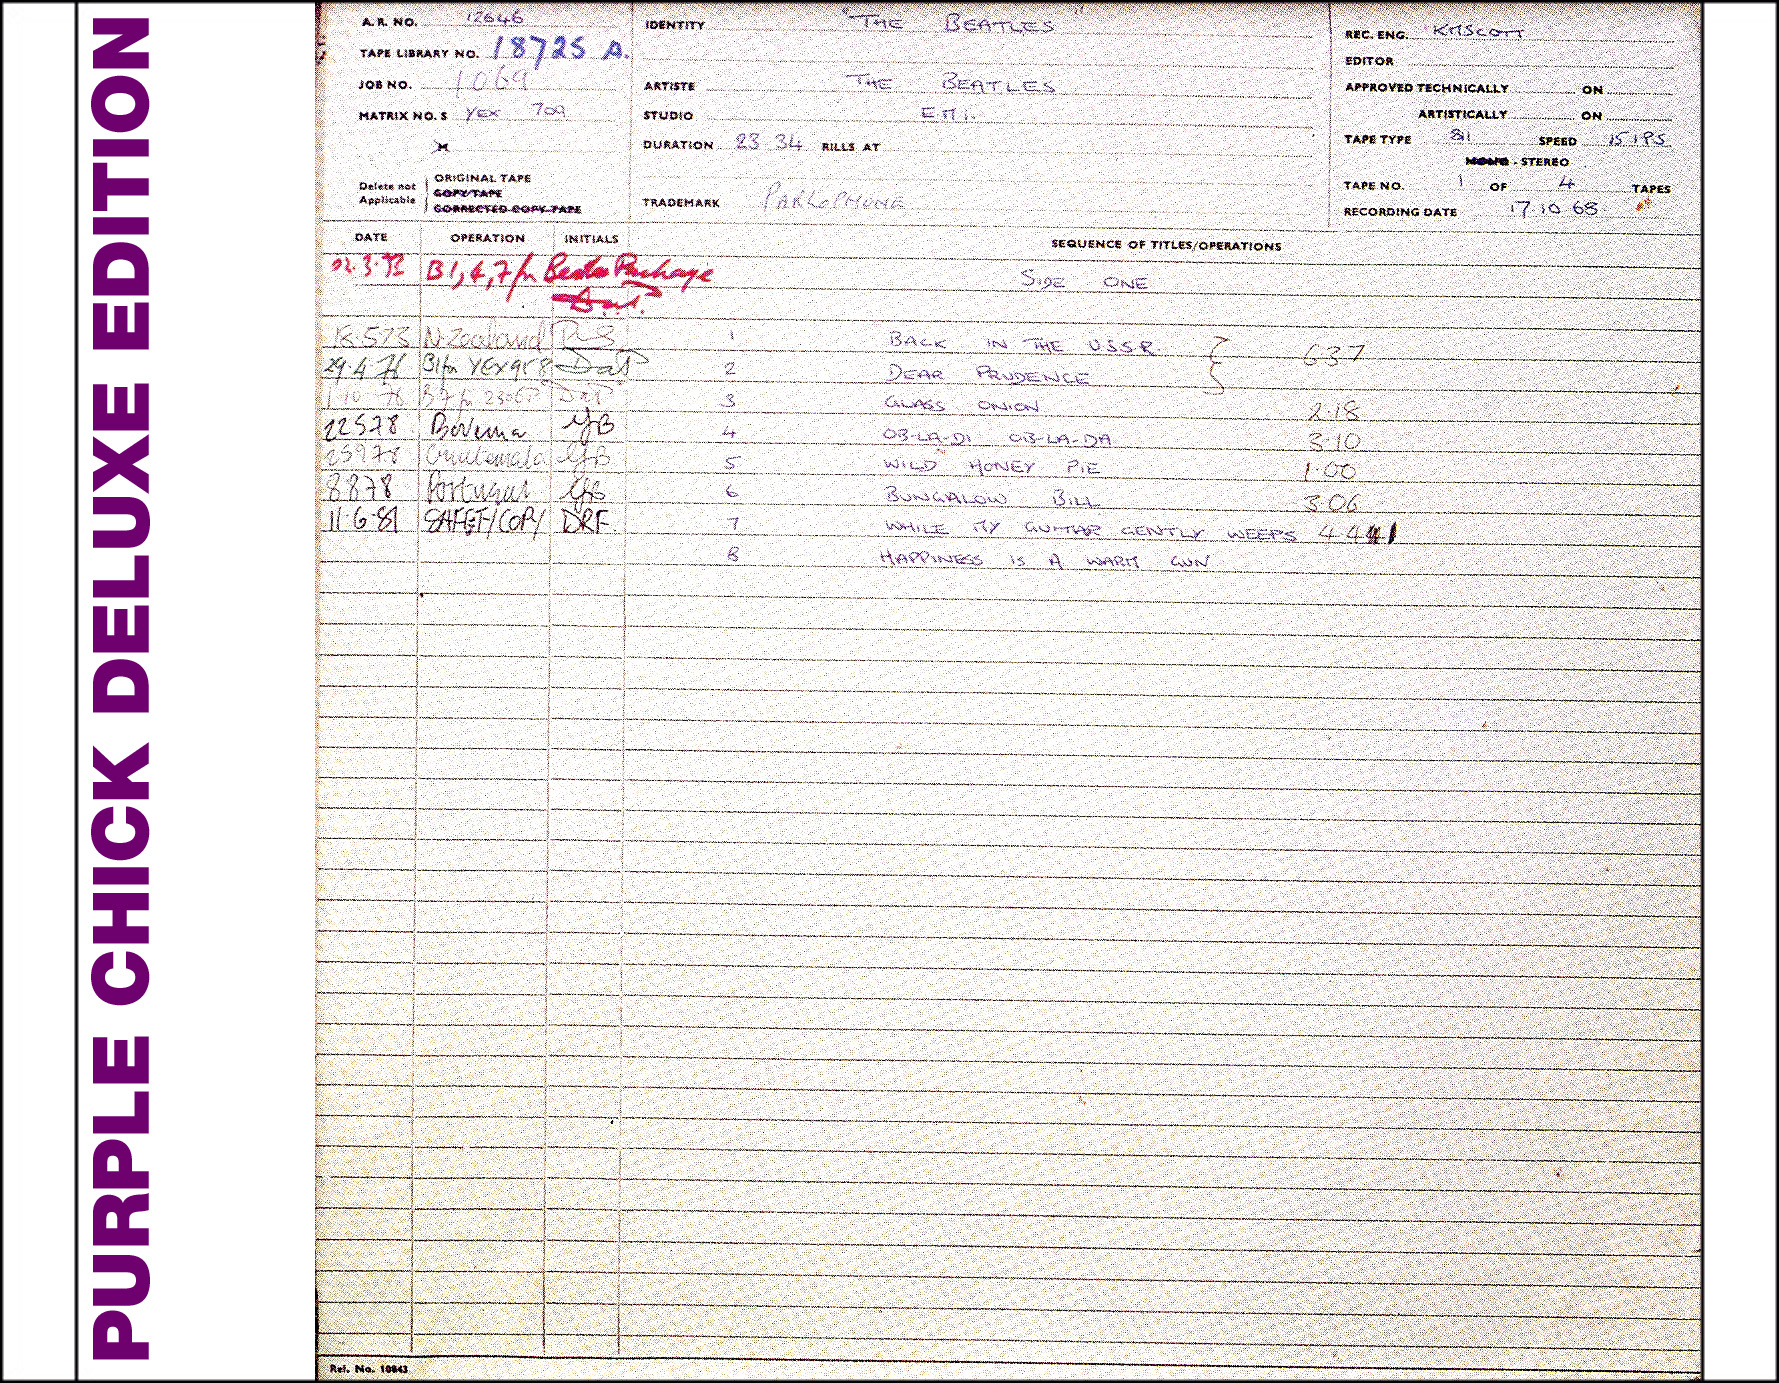 PURPLE CHICK DELUXE EDITION
A.R. NO. 12646
TAPE LIBRARY NO. 18725 A.
JOB NO. 1069
MATRIX NO. S YEX 709
M
Delete not Applicable
ORIGINAL TAPE
COPY TAPE
CORRECTED COPY TAPE
IDENTITY "THE BEATLES"
ARTISTE THE BEATLES
STUDIO E.M.I.
DURATION 23 34 RILLS AT
TRADEMARK PARLOPHONE
REC. ENG. K M SCOTT
EDITOR
APPROVED TECHNICALLY ON
ARTISTICALLY ON
TAPE TYPE 811 SPEED 15 IPS
MONO - STEREO
TAPE NO. 1 OF 4 TAPES
RECORDING DATE 17.10 68
DATE OPERATION INITIALS SEQUENCE OF TITLES/OPERATIONS
B1,4,7 for Beatles Package
SIDE ONE
N. Zealand
1 BACK IN THE U.S.S.R
29.4.76 B1 for YEX
2 DEAR PRUDENCE
6 37
3 GLASS ONION 2.18
22578 Bovema
4 OB-LA-DI OB-LA-DA 3.10
Guatemala
5 WILD HONEY PIE 1.00
8878 Portugal
6 BUNGALOW BILL 3.06
11-6-81 SAFETY COPY DRF
7 WHILE MY GUITAR GENTLY WEEPS 4 44
8 HAPPINESS IS A WARM GUN
Ref. No. 10843